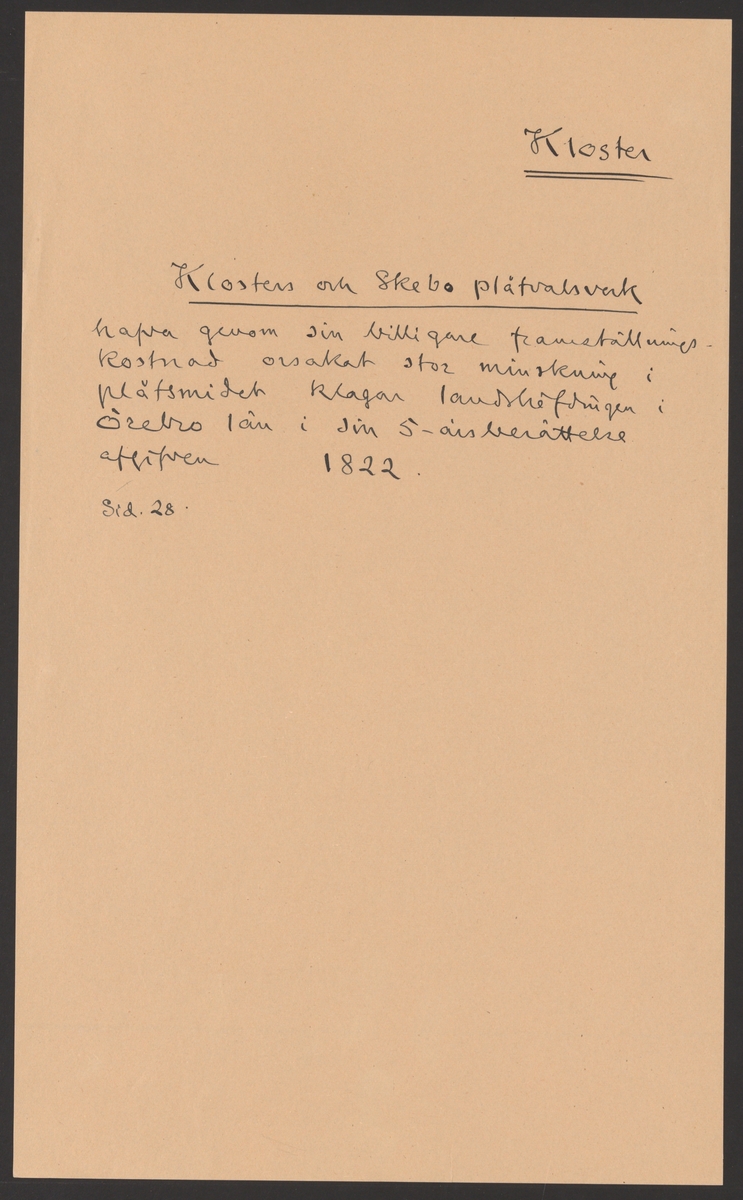 Kloster
Klosters och Skebo plåtvalsverk
hafva genom sin billigare framställnings-
kostnad orsakat stor minskning i
plåtsmidet klagar landshöfdingen i
Örebro län i sin 5-årsberättelse
afgifven 1822.
Sid. 28.